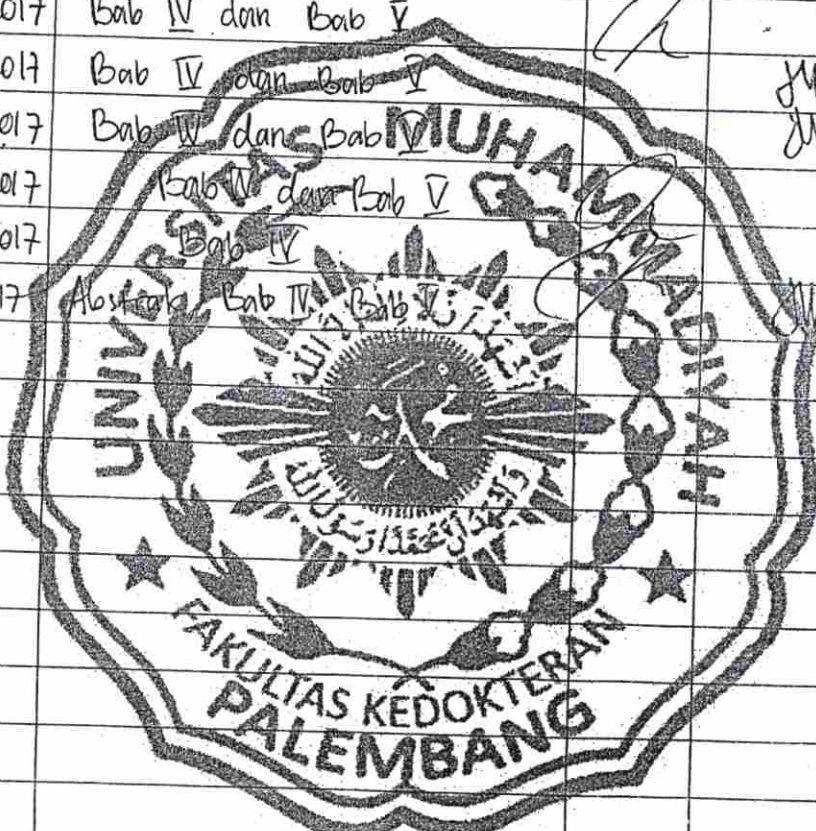 017 Bab IV dan Bab V
017 Bab IV dan Bab V
017 Bab IV dan Bab V
017 Bab IV dan Bab V
017 Bab IV
17 Abstrak, Bab IV, Bab V
UNIVERSITAS MUHAMMADIYAH
FAKULTAS KEDOKTERAN
PALEMBANG